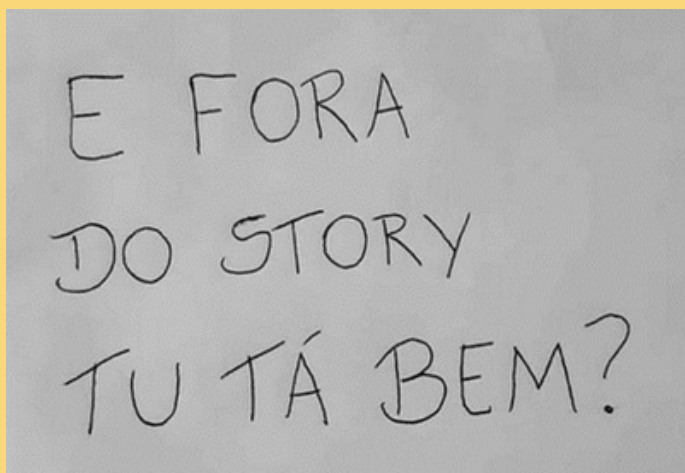 E FORA
DO STORY
TU TÁ BEM?